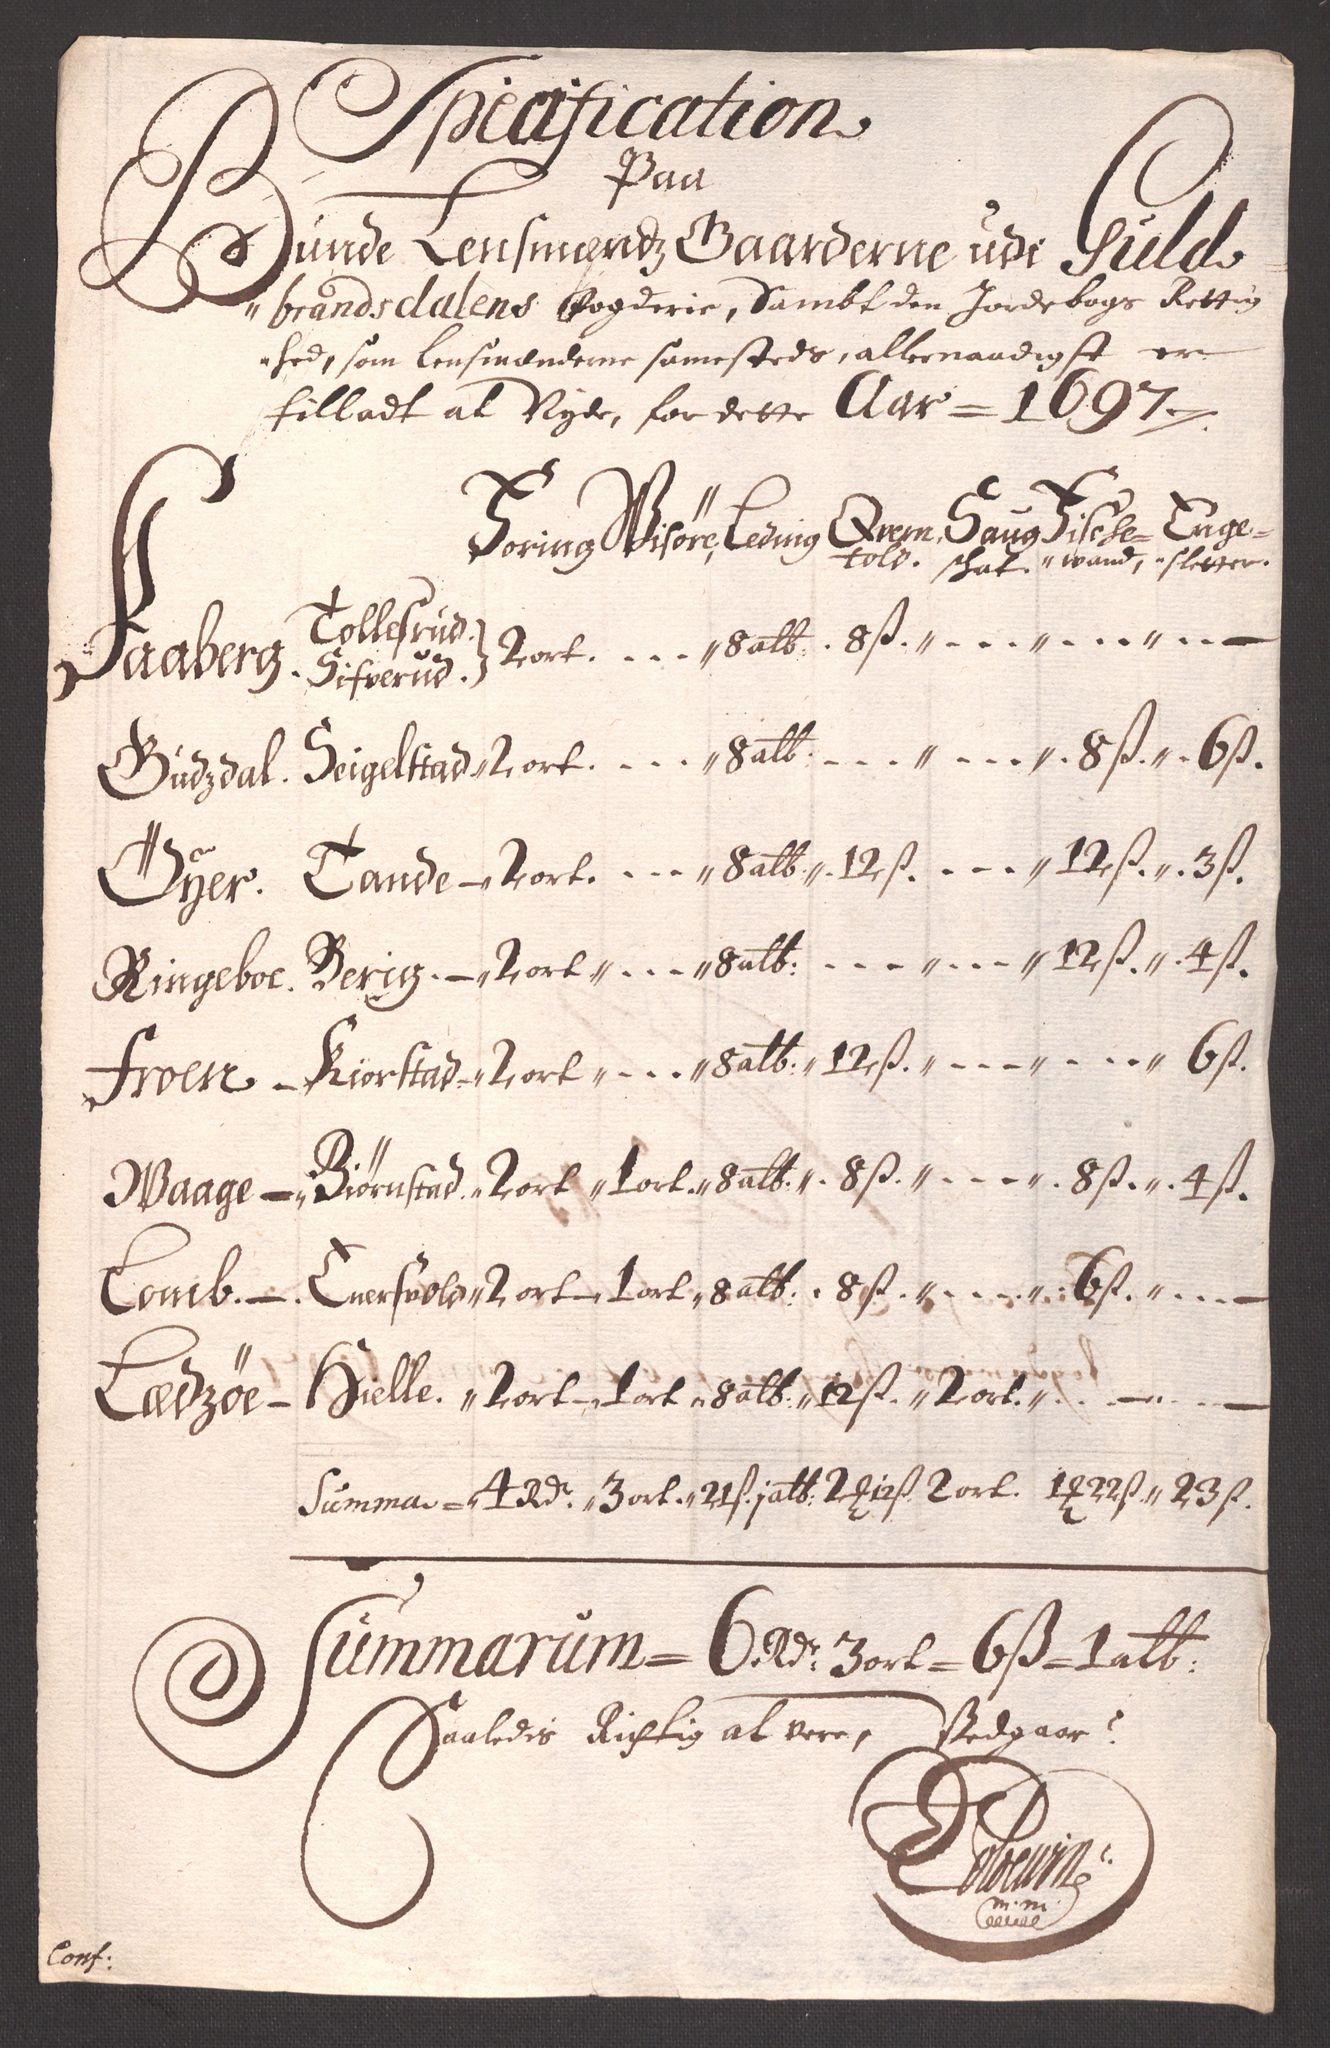 Specification
Paa
Bunde Lensmændz Gaarderne udi Guld
"brandsdalens Fogderie, Sambt den Jordebogs Rettig
"hed, som lensmænderne samesteds, allernaadigst er
tilladt at Nyde, for dette Aar = 1697
Foring Wisöre, Leding Qvern Saug Fische= Enge=
told. schat. "wand, "sletter.
Faaberg. Tollesrud. Sifverud. } 2 ort. ... " 8 alb: . 8 ß. " ... " ... " ...
Gudzdal. Seigelstad " 2 ort. ... " 8 alb: ... " ... " . 8 ß. " . 6 ß.
Öÿer. Tande - " 2 ort. ... " 8 alb: " . 12 ß. ... " 12 ß. " . 3 ß.
Ringeboe. Berig. - " 2 ort " ... " 8 alb: ... " ... " 12 ß. " . 4 ß.
Froen - Kiørstad - " 2 ort " ... " 8 alb: " 12 ß. " ... " ... " 6 ß.
Waage - " Biörnstad. " 2 ort " 1 ort. " 8 alb: " . 8 ß. " ... " . 8 ß. " . 4 ß.
Lomb. - . Enersvold " 2 ort - 1 ort " 8 alb: . 8 ß. " ... " . 6 ß. " ...
Lædzöe - Hielle. " 2 ort - 1 ort " 8 alb: " 12 ß. " 2 ort. " ...
Summa = " 4 Rdr. " 3 ort. " 21 ß. j alb: 2 ℔ 12 ß. 2 ort. 1 ℔ 22 ß. " 23 ß.
Summarum = 6 Rdr: 3 ort = 6 ß = 1 alb:
Saaledis Richtig at vere, Stedgaar:
m. m.
Conf: